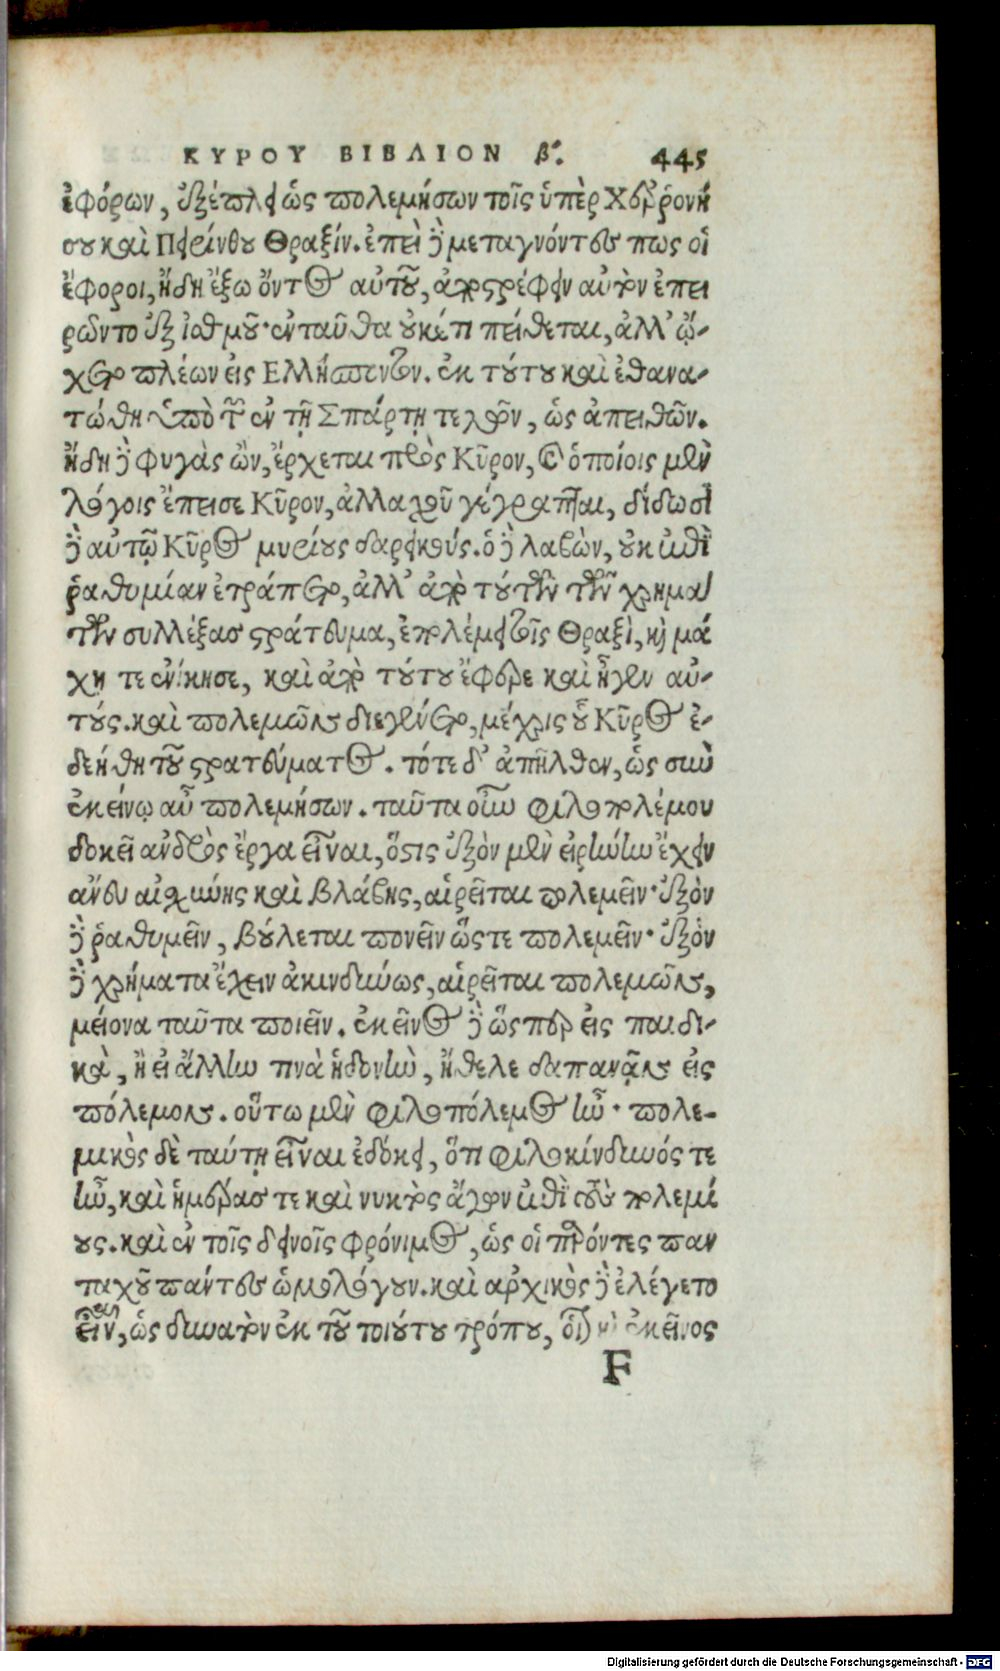 ΚΥΡΟΥ ΒΙΒΛΙΟΝ β'. 445
ἐφόρων, ἐξέπλει ὡς πολεμήσων τοῖς ὑπὲρ Χερρονή
σου καὶ Πειρίνθου Θραξίν. ἐπεὶ δὲ μεταγνόντες πως οἱ
ἔφοροι, ἤδη ἔξω ὄντος αὐτοῦ, ἀποστρέφειν αὐτὸν ἐπει
ρῶντο ἐξ ἰσθμοῦ· ἐνταῦθα οὐκέτι πείθεται, ἀλλ' ᾤ-
χετο πλέων εἰς Ἑλλήσποντον. ἐκ τούτου καὶ ἐθανα-
τώθη ὑπὸ τῶν ἐν τῇ Σπάρτῃ τελῶν, ὡς ἀπειθῶν.
ἤδη δὲ φυγὰς ὢν, ἔρχεται πρὸς Κῦρον, καὶ ὁποίοις μὲν
λόγοις ἔπεισε Κῦρον, ἀλλαχοῦ γέγραπται, δίδωσι
δὲ αὐτῷ Κῦρος μυρίους δαρεικούς. ὁ δὲ λαβὼν, οὐκ ἐπὶ
ῥαθυμίαν ἐτράπετο, ἀλλ' ἀπὸ τούτων τῶν χρημά
των συλλέξας στράτευμα, ἐπολέμει τοῖς Θραξὶ, καὶ μά
χῃ τε ἐνίκησε, καὶ ἀπὸ τούτου ἔφερε καὶ ἦγεν αὐ-
τούς. καὶ πολεμῶν διεγένετο, μέχρις οὗ Κῦρος ἐ-
δεήθη τοῦ στρατεύματος. τότε δ' ἀπῆλθεν, ὡς σὺν
ἐκείνῳ αὖ πολεμήσων. ταῦτα οὖν φιλοπολέμου
δοκεῖ ἀνδρὸς ἔργα εἶναι, ὅστις ἐξὸν μὲν εἰρήνην ἔχειν
ἄνευ αἰσχύνης καὶ βλάβης, αἱρεῖται πολεμεῖν· ἐξὸν
δὲ ῥαθυμεῖν, βούλεται πονεῖν ὥστε πολεμεῖν· ἐξὸν
δὲ χρήματα ἔχειν ἀκινδύνως, αἱρεῖται πολεμῶν,
μείονα ταῦτα ποιεῖν. ἐκεῖνος δὲ ὥσπερ εἰς παιδι-
κὰ, ἢ εἰ ἄλλην τινὰ ἡδονὴν, ἤθελε δαπανᾶν εἰς
πόλεμον. οὕτω μὲν φιλοπόλεμος ἦν· πολε-
μικὸς δὲ ταύτῃ εἶναι ἐδόκει, ὅτι φιλοκίνδυνός τε
ἦν, καὶ ἡμέρας τε καὶ νυκτὸς ἄγων ἐπὶ τοὺς πολεμί
ους. καὶ ἐν τοῖς δεινοῖς φρόνιμος, ὡς οἱ παρόντες παν
ταχοῦ πάντες ὡμολόγουν. καὶ ἀρχικὸς δὲ ἐλέγετο
εἶναι, ὡς δυνατὸν ἐκ τοῦ τοιούτου τρόπου, οἷον καὶ ἐκεῖνος
F
Digitalisierung gefördert durch die Deutsche Forschungsgemeinschaft - DFG